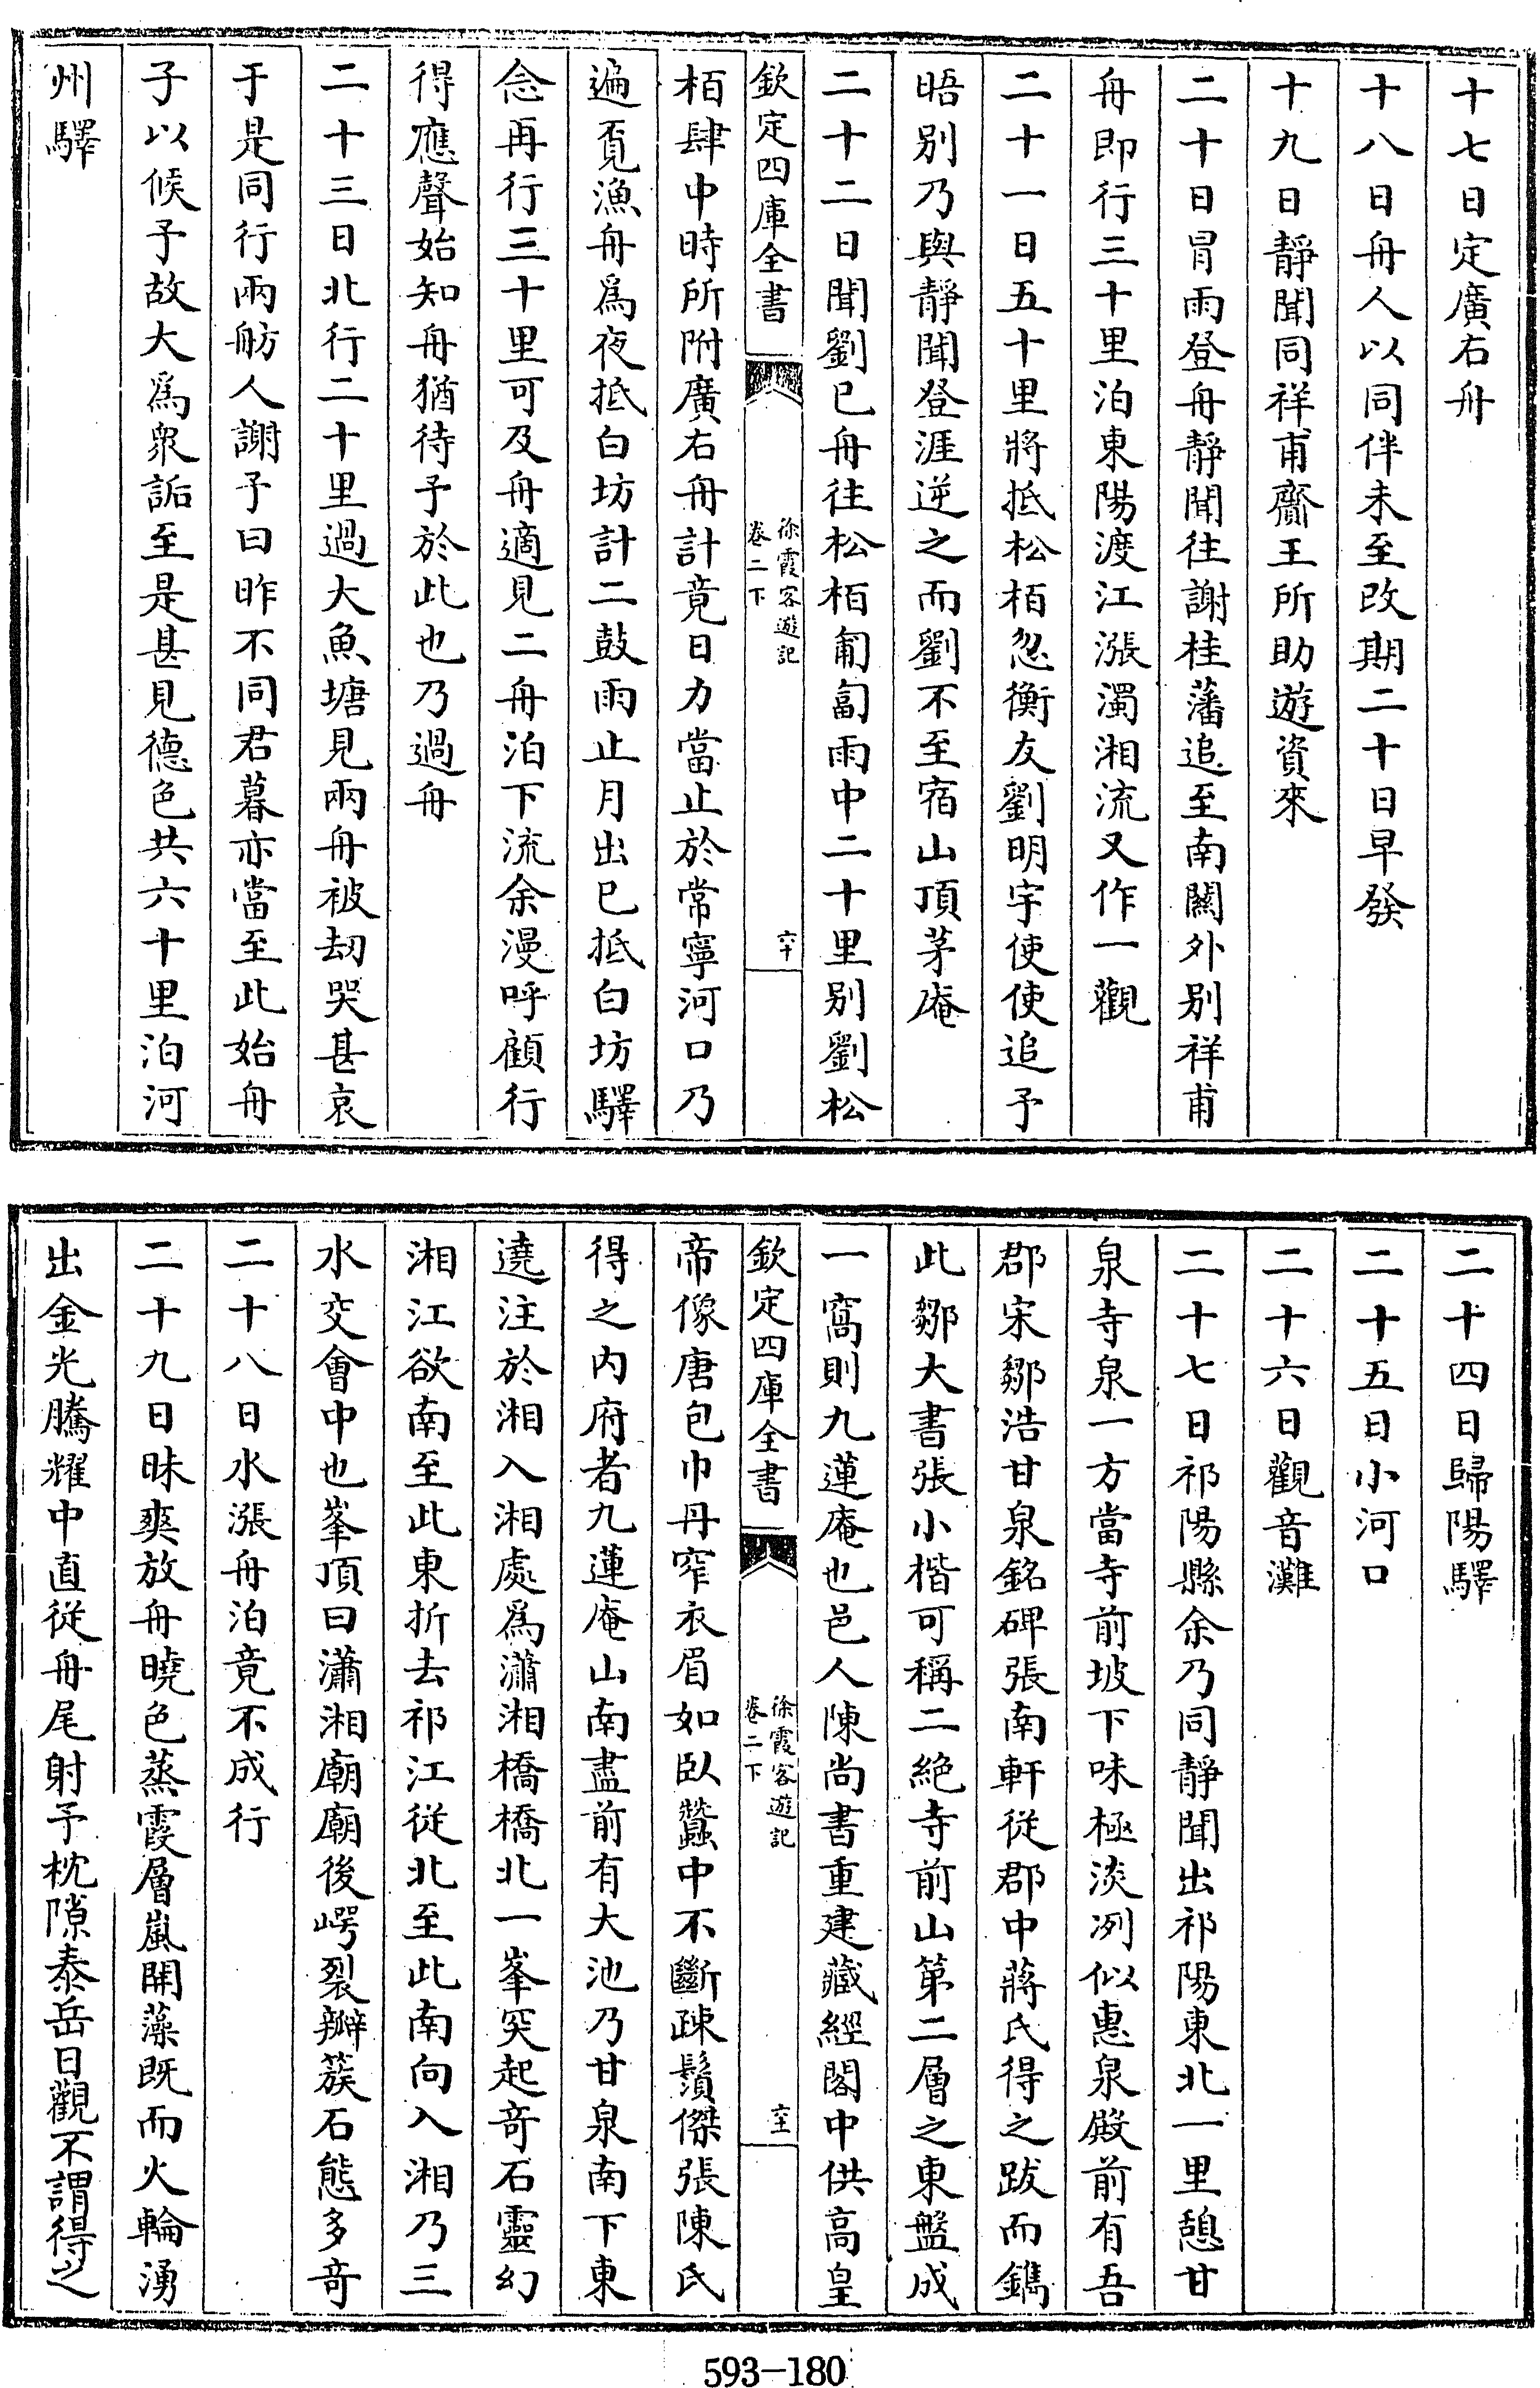 十七日定廣右舟
十八日舟人以同伴未至改期二十日早發
十九日靜聞同祥甫齋王所助遊資來
二十日冒雨登舟靜聞往謝桂藩追至南關外别祥甫
舟即行三十里泊東陽渡江漲濁湘流又作一觀
二十一日五十里將抵松栢忽衡友劉明宇使使追予
晤别乃與靜聞登涯逆之而劉不至宿山頂茅庵
二十二日聞劉已舟往松栢匍匐雨中二十里别劉松
欽定四庫全書
徐霞客遊記
卷二下
六十
栢肆中時所附廣右舟計竟日力當止於常寧河口乃
遍覓漁舟為夜抵白坊計二鼓雨止月出已抵白坊驛
念再行三十里可及舟適見二舟泊下流余漫呼顧行
得應聲始知舟猶待予於此也乃過舟
二十三日北行二十里過大魚塘見兩舟被刼哭甚哀
于是同行兩舫人謝予曰昨不同君暮亦當至此始舟
子以候予故大為衆詬至是甚見德色共六十里泊河
州驛
二十四日歸陽驛
二十五日小河口
二十六日觀音灘
二十七日祁陽縣余乃同靜聞出祁陽東北一里憩甘
泉寺泉一方當寺前坡下味極淡冽似惠泉殿前有吾
郡宋鄒浩甘泉銘碑張南軒從郡中蔣氏得之跋而鐫
此鄒大書張小楷可稱二絶寺前山第二層之東盤成
一窩則九蓮庵也邑人陳尚書重建藏經閣中供高皇
欽定四庫全書
徐霞客遊記
卷二下
六十一
帝像唐包巾丹窄衣眉如臥蠶中不斷疎鬚傑張陳氏
得之内府者九蓮庵山南盡前有大池乃甘泉南下東
遶注於湘入湘處為瀟湘橋橋北一峯突起竒石靈幻
湘江欲南至此東折去祁江從北至此南向入湘乃三
水交會中也峯頂曰瀟湘廟廟後崿裂瓣簇石態多竒
二十八日水漲舟泊竟不成行
二十九日昧爽放舟曉色蒸霞層嵐開藻既而火輪湧
出金光騰耀中直從舟尾射予枕隙泰岳日觀不謂得之
593-180